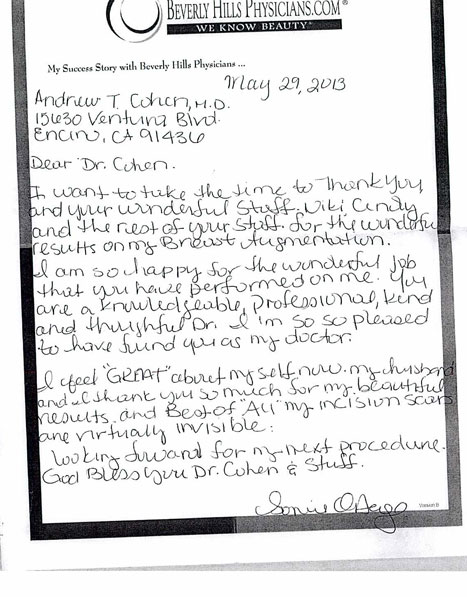 BEVERLY HILLS PHYSICIANS.COM®
WE KNOW BEAUTY
My Success Story with Beverly Hills Physicians ...
May 29, 2013
Andrew T. Cohen, M.D.
15630 Ventura Blvd.
Encino, CA 91436
Dear Dr. Cohen.
I want to take the time to Thank you,
and your wonderful Staff. Viki Cindy
and the rest of your Staff for the wonderful
results on my Breast Augmentation.
I am so happy for the wonderful job
that you have performed on me. You
are a knowledgeable, Professional, Kind
and thoughtful Dr. I'm so so pleased
to have found you as my doctor.
I feel "GREAT" about my self now. my husband
and I thank you so much for my beautiful
results. and Best of "All" my incision scars
are virtually invisible.
Looking forward for my next procedure.
God Bless you Dr. Cohen & Staff.